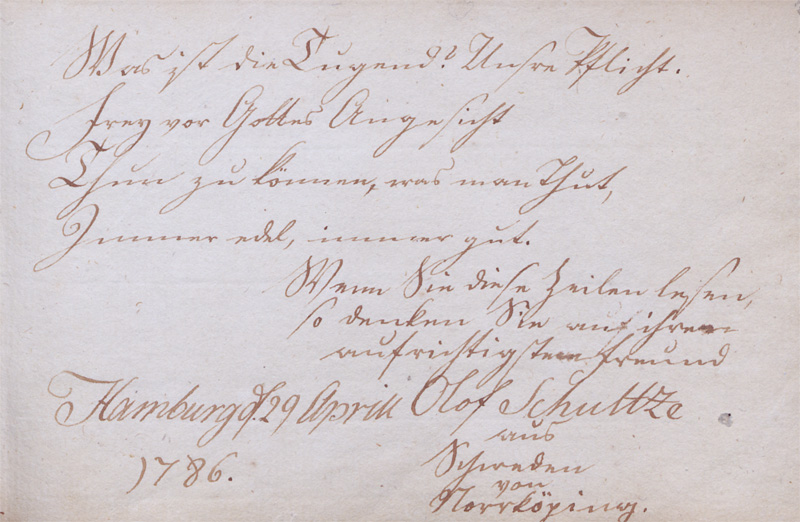 Was ist die Tugend? Unsre Pflicht.
Frey vor Gottes Angesicht
Thun zu können, was man Thut,
Immer edel, immer gut.
Wenn Sie diese Zeilen lesen,
so denken Sie auf ihren
aufrichtigsten freund
Hamburg d. 29 Aprill Olof Schultze
aus
1786. Schweden
von
Norrköping.